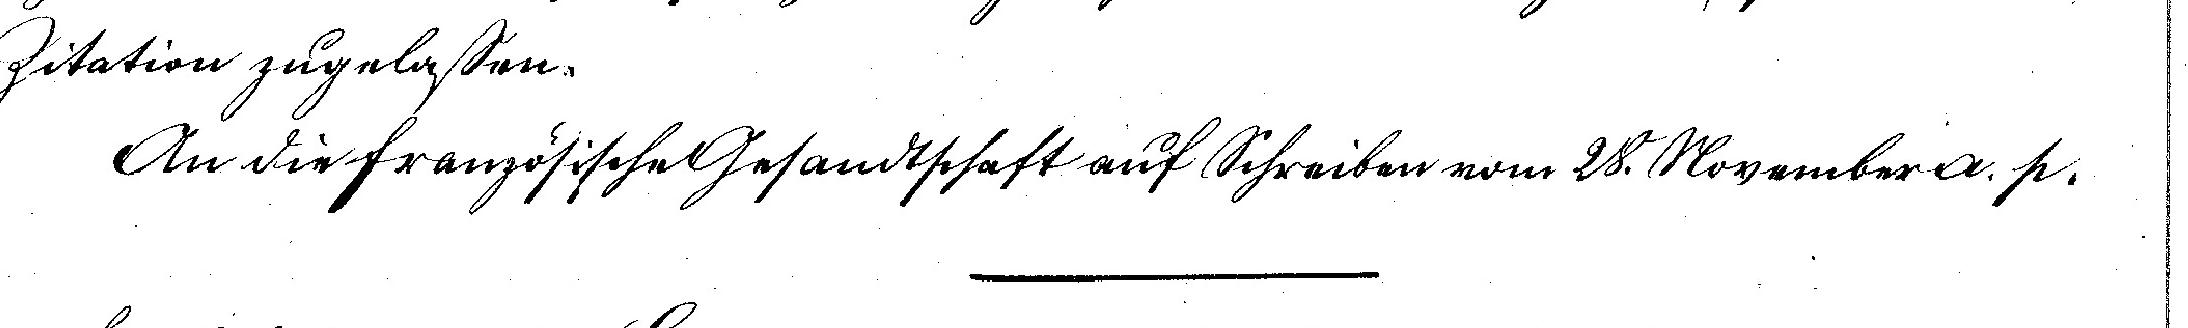 Zitation zugelassen.
An die französische Gesandtschaft auf Schreiben vom 28. November a. p.